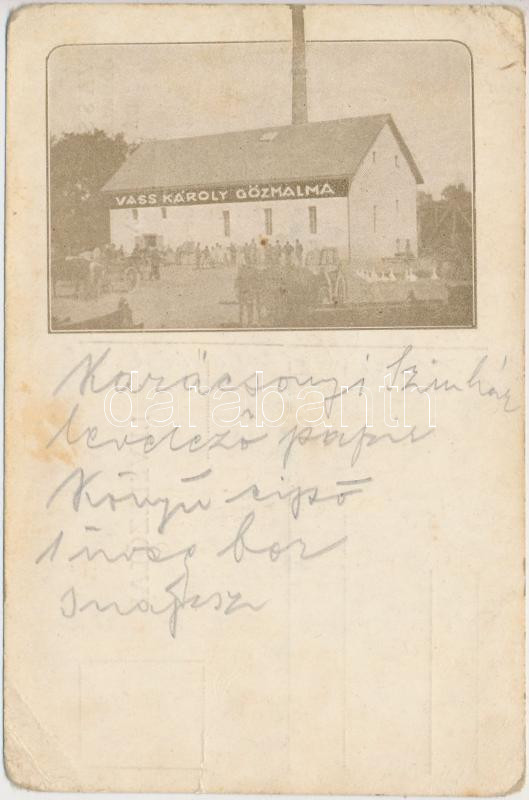 VASS KÁROLY GŐZMALMA
Karácsonyi Szinház
levelező papir
Könyv cipő
1 üveg bor
darabanth